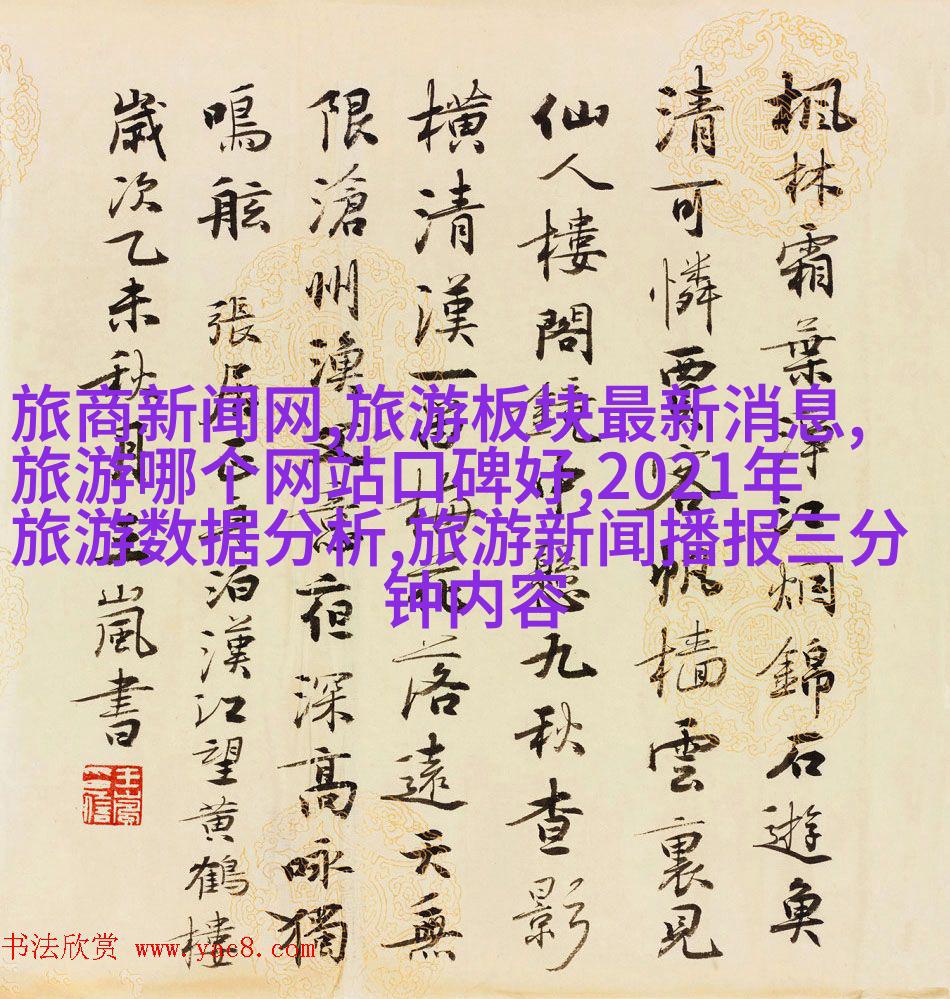 楓林霜葉淨江烟錦石遊魚
清可憐賈客帆檣雲裏見
仙人樓閣鏡中懸九秋查影
橫清漢一笛梅花落遠天無
限滄州漁父意夜深高咏獨
鳴舷 張居正舟泊漢江望黄鶴樓
歲次乙未秋月王嵐書
旅商新闻网,旅游板块最新消息,
旅游哪个网站口碑好,2021年
旅游数据分析,旅游新闻播报三分
钟内容
书法欣赏 www.yac8.com